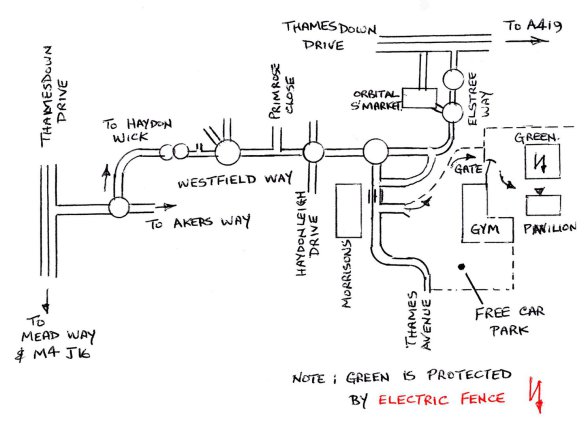 THAMESDOWN
DRIVE
TO A419
THAMESDOWN
DRIVE
PRIMROSE
CLOSE
ORBITAL
S'MARKET
ELSTREE
WAY
TO HAYDON
WICK
GREEN.
WESTFIELD WAY
GATE
TO AKERS WAY
HAYDONLEIGH
DRIVE
MORRISONS
GYM
PAVILION
THAMES
AVENUE
FREE CAR
PARK
TO
MEAD WAY
& M4 J16
NOTE ; GREEN IS PROTECTED
BY ELECTRIC FENCE